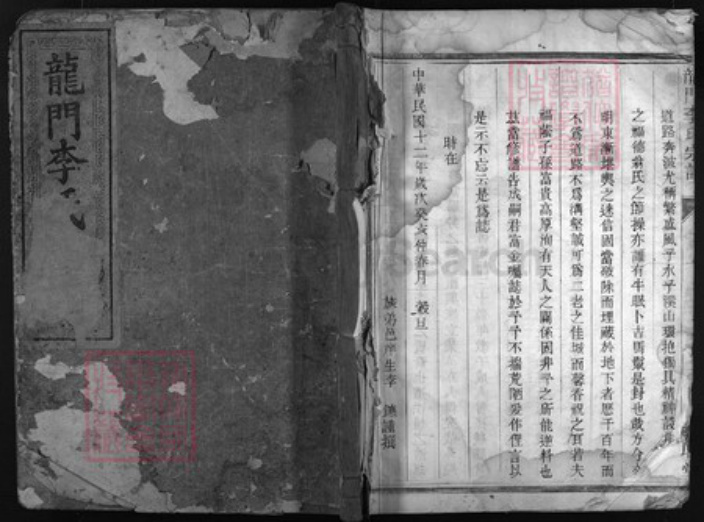 龍門李氏
道路奔波尤頻繁盧風乎水乎深山環抱
之福德翁氏之節操亦誰有牛眠卜吉馬鬣是封也哉方今
明東漸堪輿之迷信固當破除而埋藏於地下者歷千百年而
不為道路不為溝壑誠可為二老之佳城而馨香祝之耳若夫
福蔭子孫富貴高厚洵有天人之關係固非予之所能逆料也
茲當修譜告成嗣君富金囑誌於予予不揣荒陋爰作俚言以
是示不忘云是為誌
時在
中華民國十二年歲次癸亥仲春月 穀旦
族弟邑庠生李 謹撰